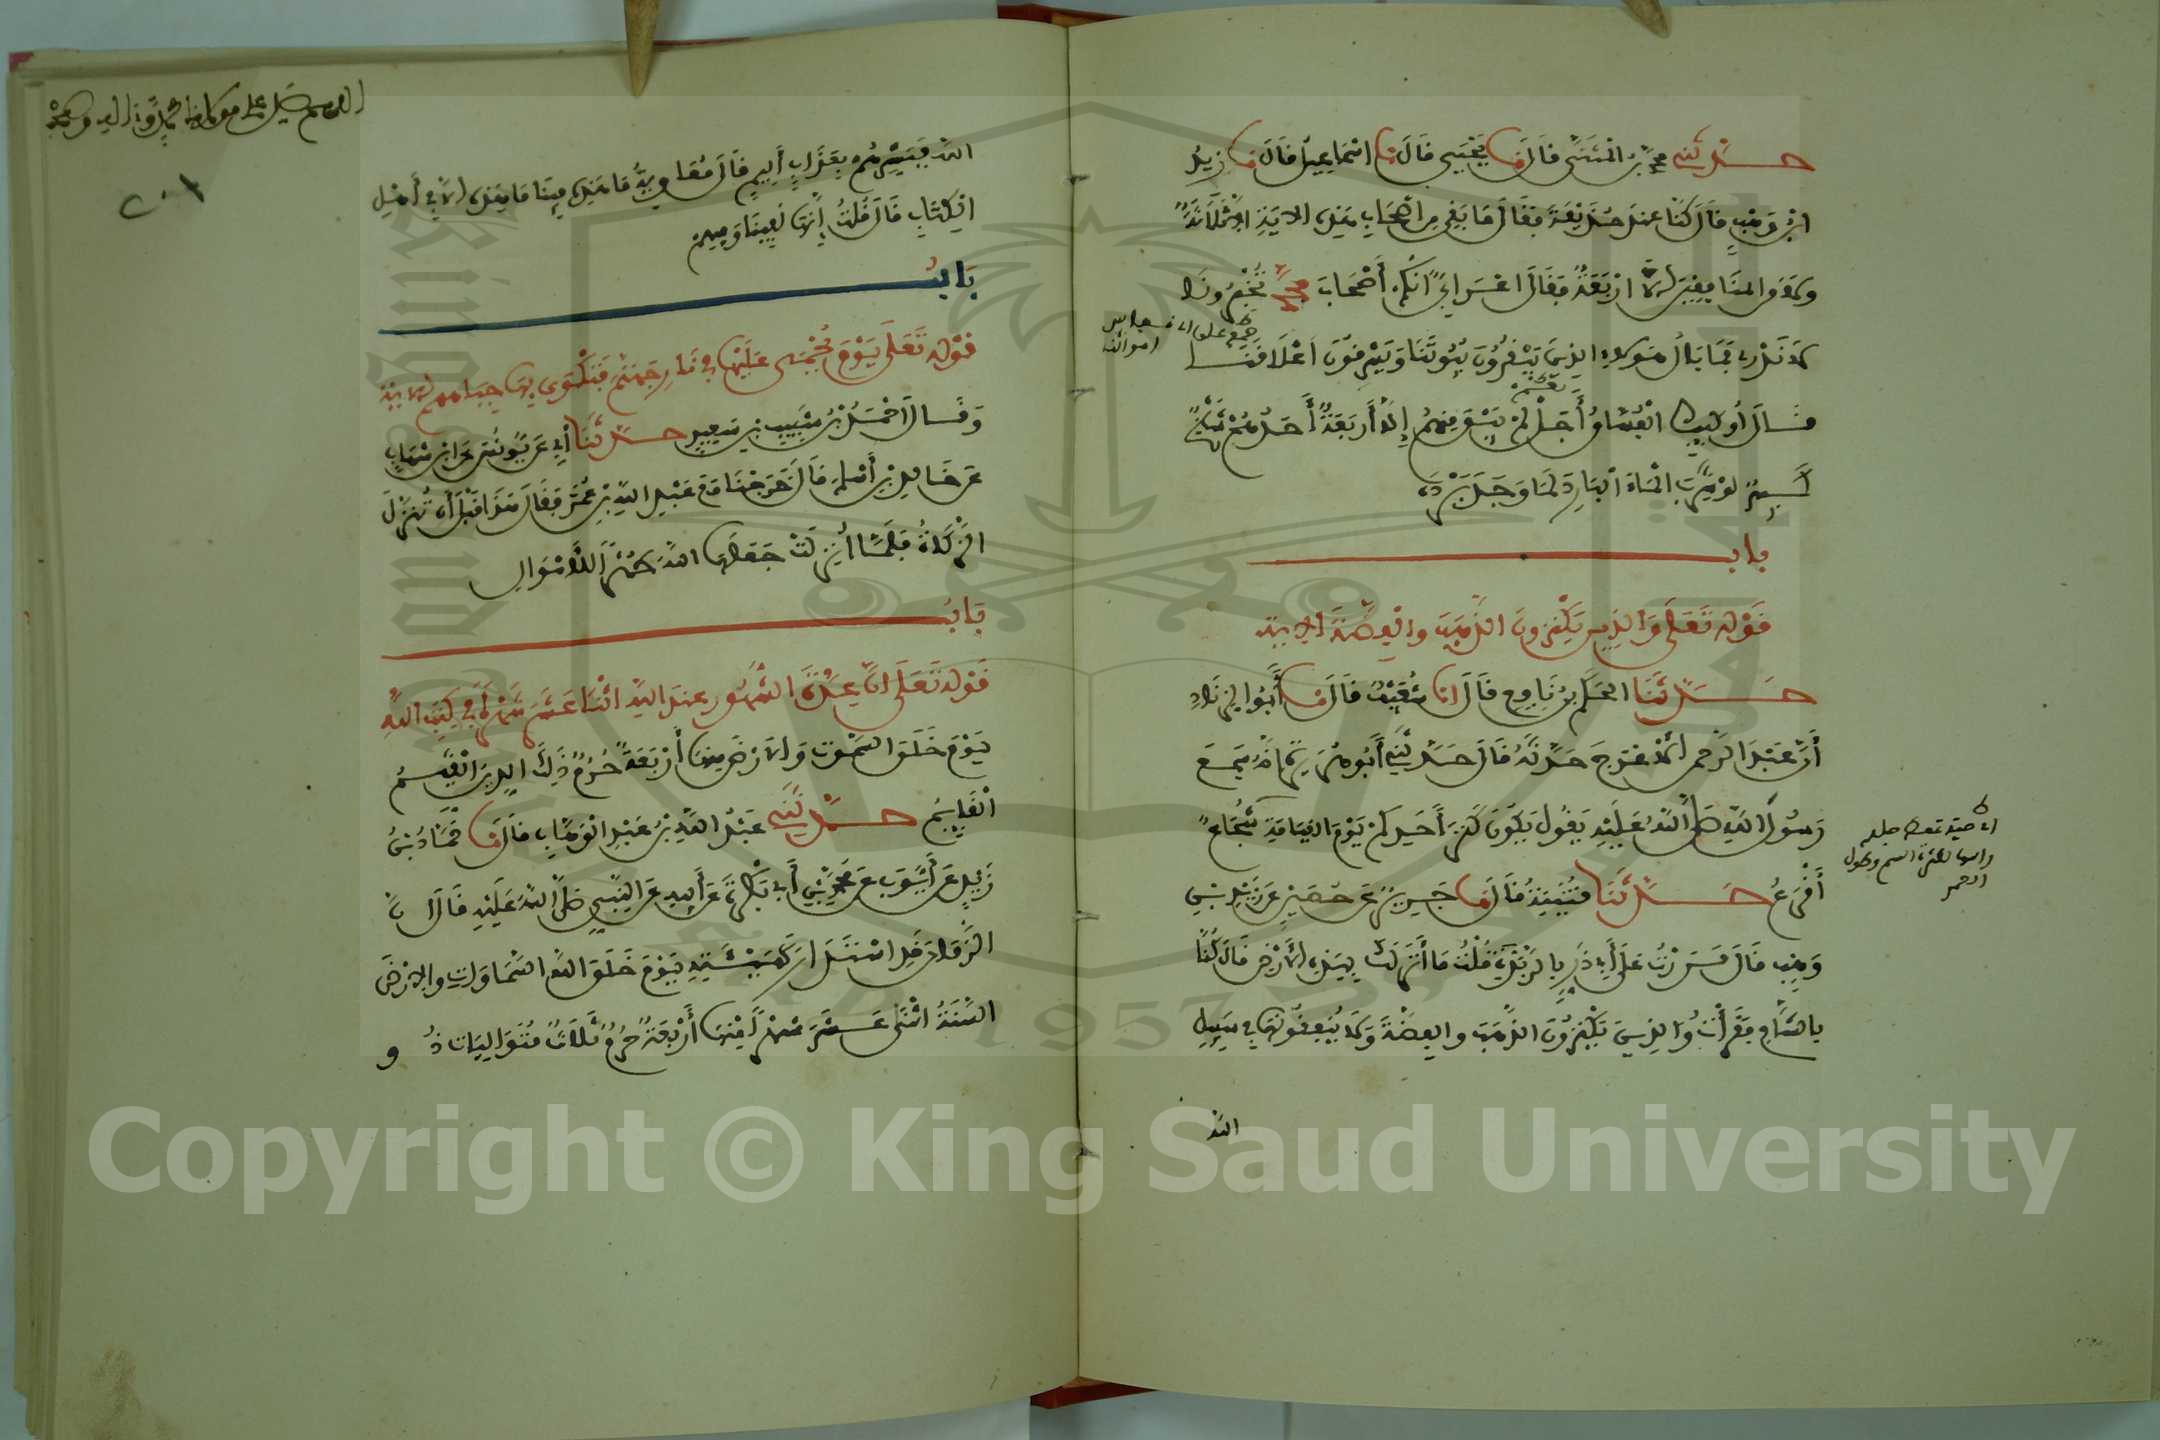 حدثني محمد بن المثنى قال نا يحيى قال نا اسماعيل قال نا زيد
ابن وهب قال كنا عند حذيفة فقال ما بقي من اصحاب هذه الاية الا ثلاثة
ولا من المنافقين الا اربعة فقال اعرابي انكم أصحاب محمد تخبروننا
لا ندري فما بال هؤلاء الذين يبقرون بيوتنا ويسرقون اعلاقنا
قال أوليك الفساق أجل لم يبق منهم إلا أربعة أحدهم شيخ
كبير لو شرب الماء البارد لما وجد برده
باب
قوله تعلى والذين يكنزون الذهب والفضة الاية
حدثنا الحكم بن نافع قال انا شعيب قال نا أبو الزناد
أن عبد الرحمن الاعرج حدثه قال حدثني أبو هريرة انه سمع
رسول الله صلى الله عليه يقول يكون كنز أحدكم يوم القيامة شجاعا
أقرع حدثنا قتيبة قال نا جرير عن حصين عن زيد بن
وهب قال مررت على أبي ذر بالربذة قلت ما أنزلك بهذه الأرض قال كنا
بالشام فقرأت والذين يكنزون الذهب والفضة ولا ينفقونها في سبيل
الله
الله فبشرهم بعذاب أليم قال معاوية ما هذه فينا ما هذه الا في أهل
الكتاب قال قلت إنها لفينا وفيهم
باب
قوله تعلى يوم يحمى عليها في نار جهنم فتكوى بها جباههم الاية
وقال احمد بن شبيب بن سعيد حدثنا أبي عن يونس عن ابن شهاب
عن خالد بن أسلم قال خرجنا مع عبد الله بن عمر فقال هذا قبل أن تنزل
الزكاة فلما أنزلت جعلها الله طهرا للأموال
باب
قوله تعلى ان عدة الشهور عند الله اثنا عشر شهرا في كتب الله
يوم خلق السموت والارض منها أربعة حرم ذلك الدين القيم
القايم حدثني عبد الله بن عبد الوهاب قال نا حماد بن
زيد عن أيوب عن محمد عن بن أبي بكرة عن أبيه عن النبي صلى الله عليه قال ان
الزمان قد استدار كهيئته يوم خلق الله السماوات والارض
السنة اثنى عشر شهرا منها أربعة حرم ثلاث متواليات ذو
Copyright © King Saud University
1957